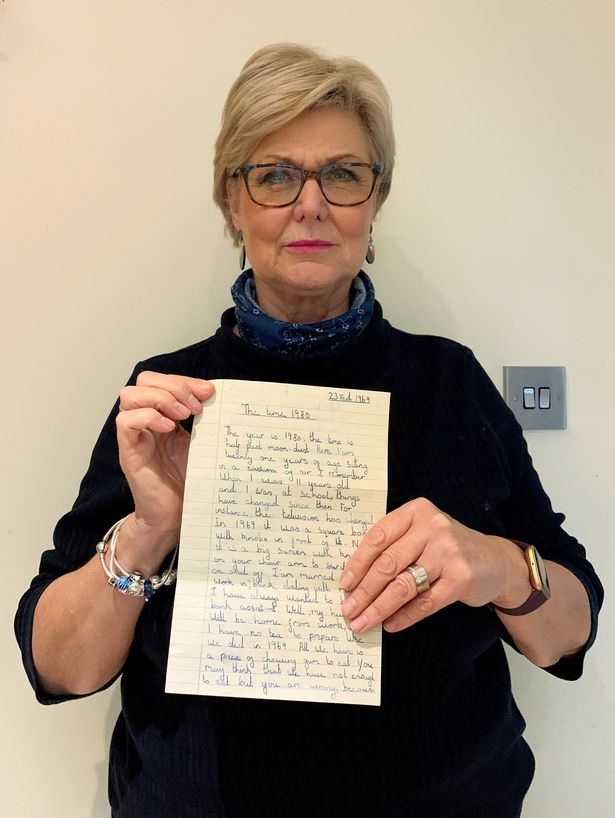 23rd 1969
The time 1980
The year is 1980. the time is
half past moon dust Here I'am
twenty one years of age siting
in a cushione of air I remember
when I was 11 years old
and I was at school, things
have changed since then. For
instance the television has changed
In 1969 it was a square box
with knobs in front of it. N
it is a big screen with
on your chair arm to
on and off. I am married
work in bank, dealing with
I have always wanted to
bank assistant. Well my hus
will be home from work,
I have no tea to prepare like
we did in 1969. All we have is
a piece of chewing gum to eat you
may think that we have not enough
to eat but you are wrong, because